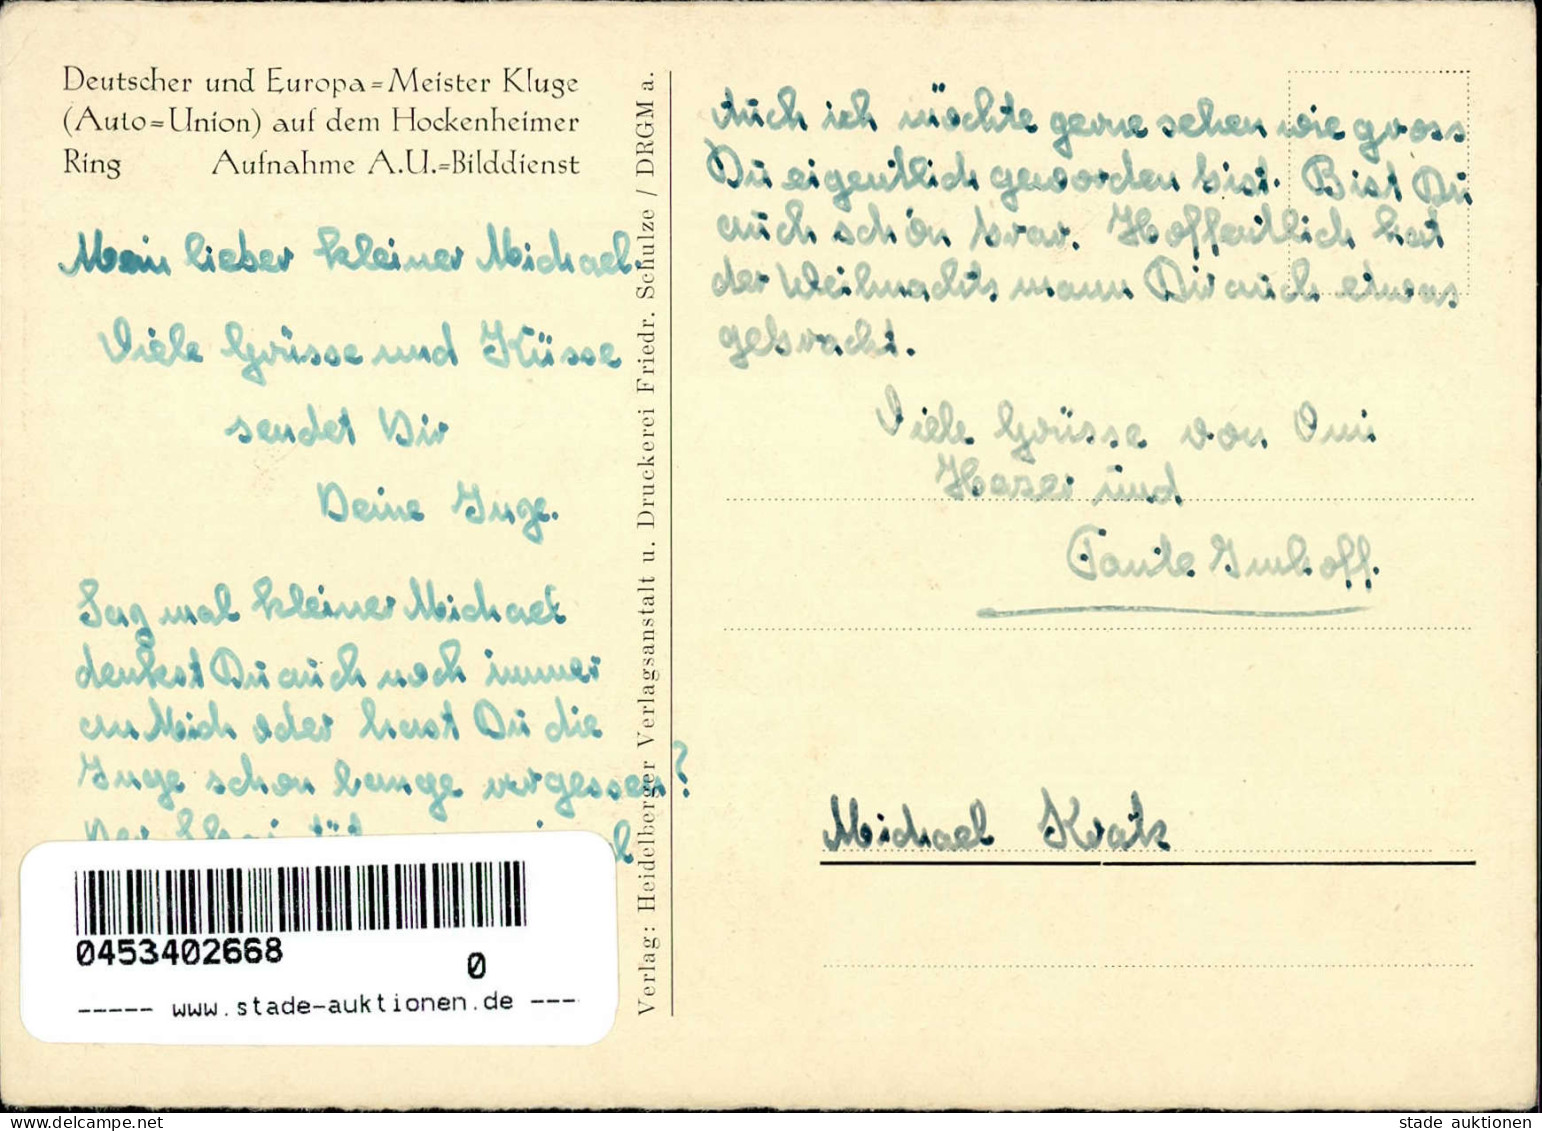 Deutscher und Europa=Meister Kluge
(Auto=Union) auf dem Hockenheimer
Ring Aufnahme A.U.=Bilddienst
Mein lieber kleiner Michael.
Viele Grüsse und Küsse
sendet Dir
Deine Inge.
Sag mal kleiner Michael
denkst Du auch noch immer
an Mich oder hast Du die
Inge schon lange vergessen?
Verlag: Heidelberger Verlagsanstalt u. Druckerei Friedr. Schulze / DRGM a.
Auch ich möchte gerne sehen wie gross
Du eigentlich geworden bist. Bist Du
auch schön brav. Hoffentlich hat
der Weihnachtsmann Dir auch etwas
gebracht.
Viele Grüsse von Omi
und
Tante Imhoff.
Michael Kratz
0453402668
0
----- www.stade-auktionen.de ---
stade auktionen